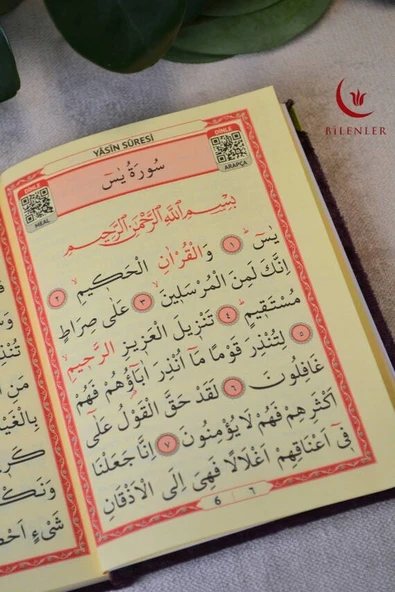 BİLENLER
YÂSİN SÛRESİ
DİNLE
MEAL
DİNLE
ARAPÇA
سورة يس
بِسْمِ اللّٰهِ الرَّحْمٰنِ الرَّحِيمِ
يٰسٓ ١ وَالْقُرْاٰنِ الْحَكِيمِ ٢
اِنَّكَ لَمِنَ الْمُرْسَلِينَ ٣ عَلٰى صِرَاطٍ
مُسْتَقِيمٍ ٤ تَنْزِيلَ الْعَزِيزِ الرَّحِيمِ ٥
لِتُنْذِرَ قَوْمًا مَٓا اُنْذِرَ اٰبَٓاؤُ۬هُمْ فَهُمْ
غَافِلُونَ ٦ لَقَدْ حَقَّ الْقَوْلُ عَلٰٓى
اَكْثَرِهِمْ فَهُمْ لَا يُؤْمِنُونَ ٧ اِنَّا جَعَلْنَا
فِٓي اَعْنَاقِهِمْ اَغْلَالًا فَهِيَ اِلَى الْاَذْقَانِ
6 | ٦
وَنَكْ
شَيْءٍ اَحْ